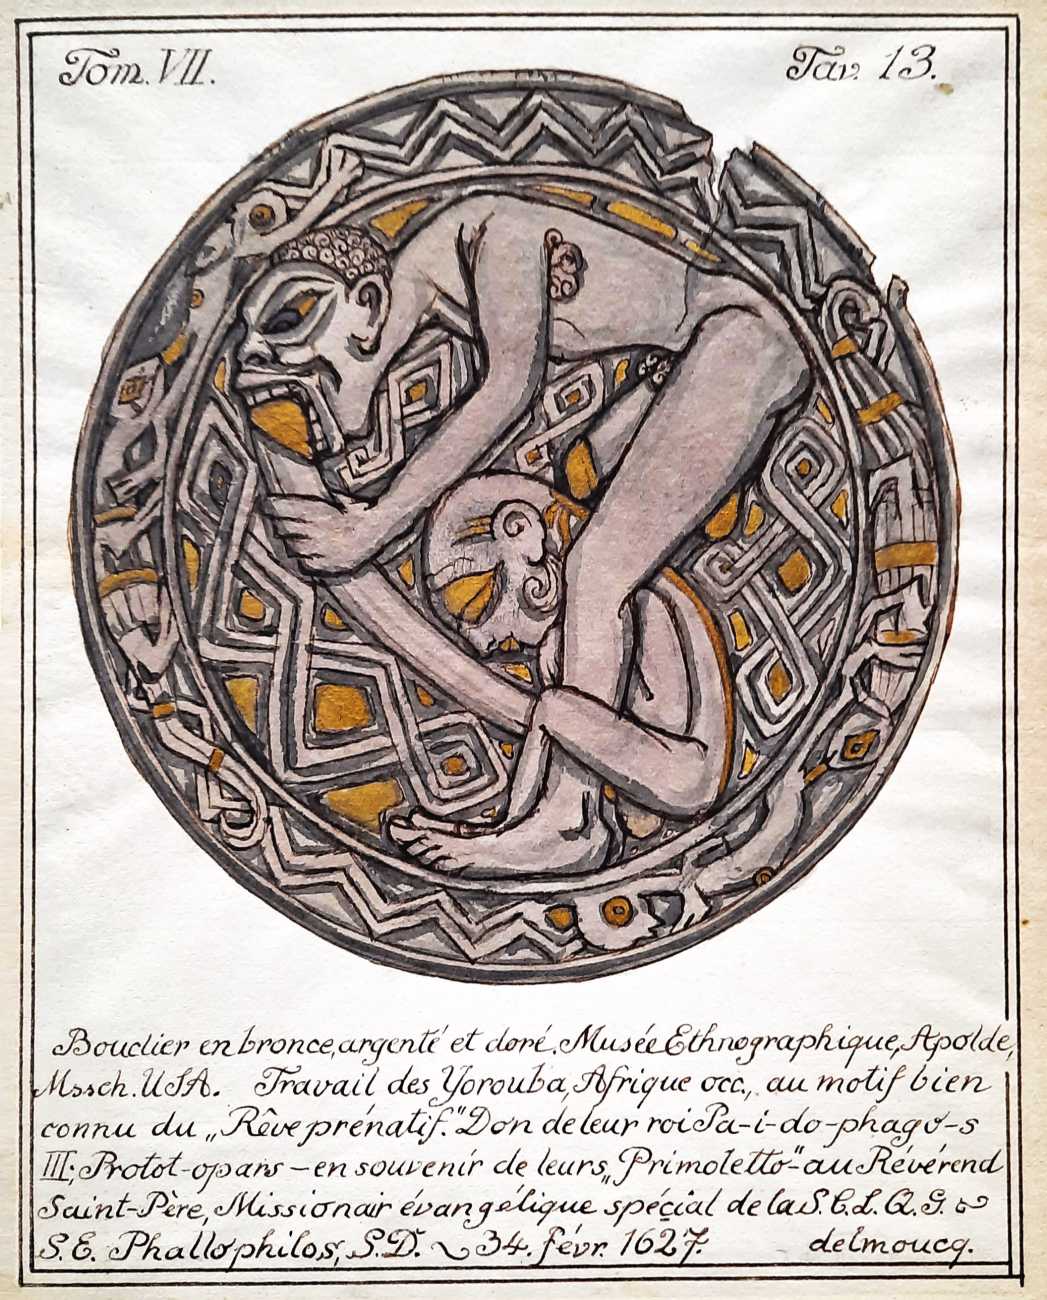 Tom. VII.
Tav. 13.
Bouclier en bronce, argenté et doré. Musée Ethnographique, Apolde,
Mssch. USA. Travail des Yorouba, Afrique occ., au motif bien
connu du „Rêve prénatif." Don de leur roi Pa-i-do-phago-s
III; Protot-opars – en souvenir de leurs „Primoletto-" au Révérend
Saint-Père, Missionair évangélique spécial de la S.C.L.Q.G.
S.E. Phallophilos, S.D. 34. févr. 1627. delmoucq.